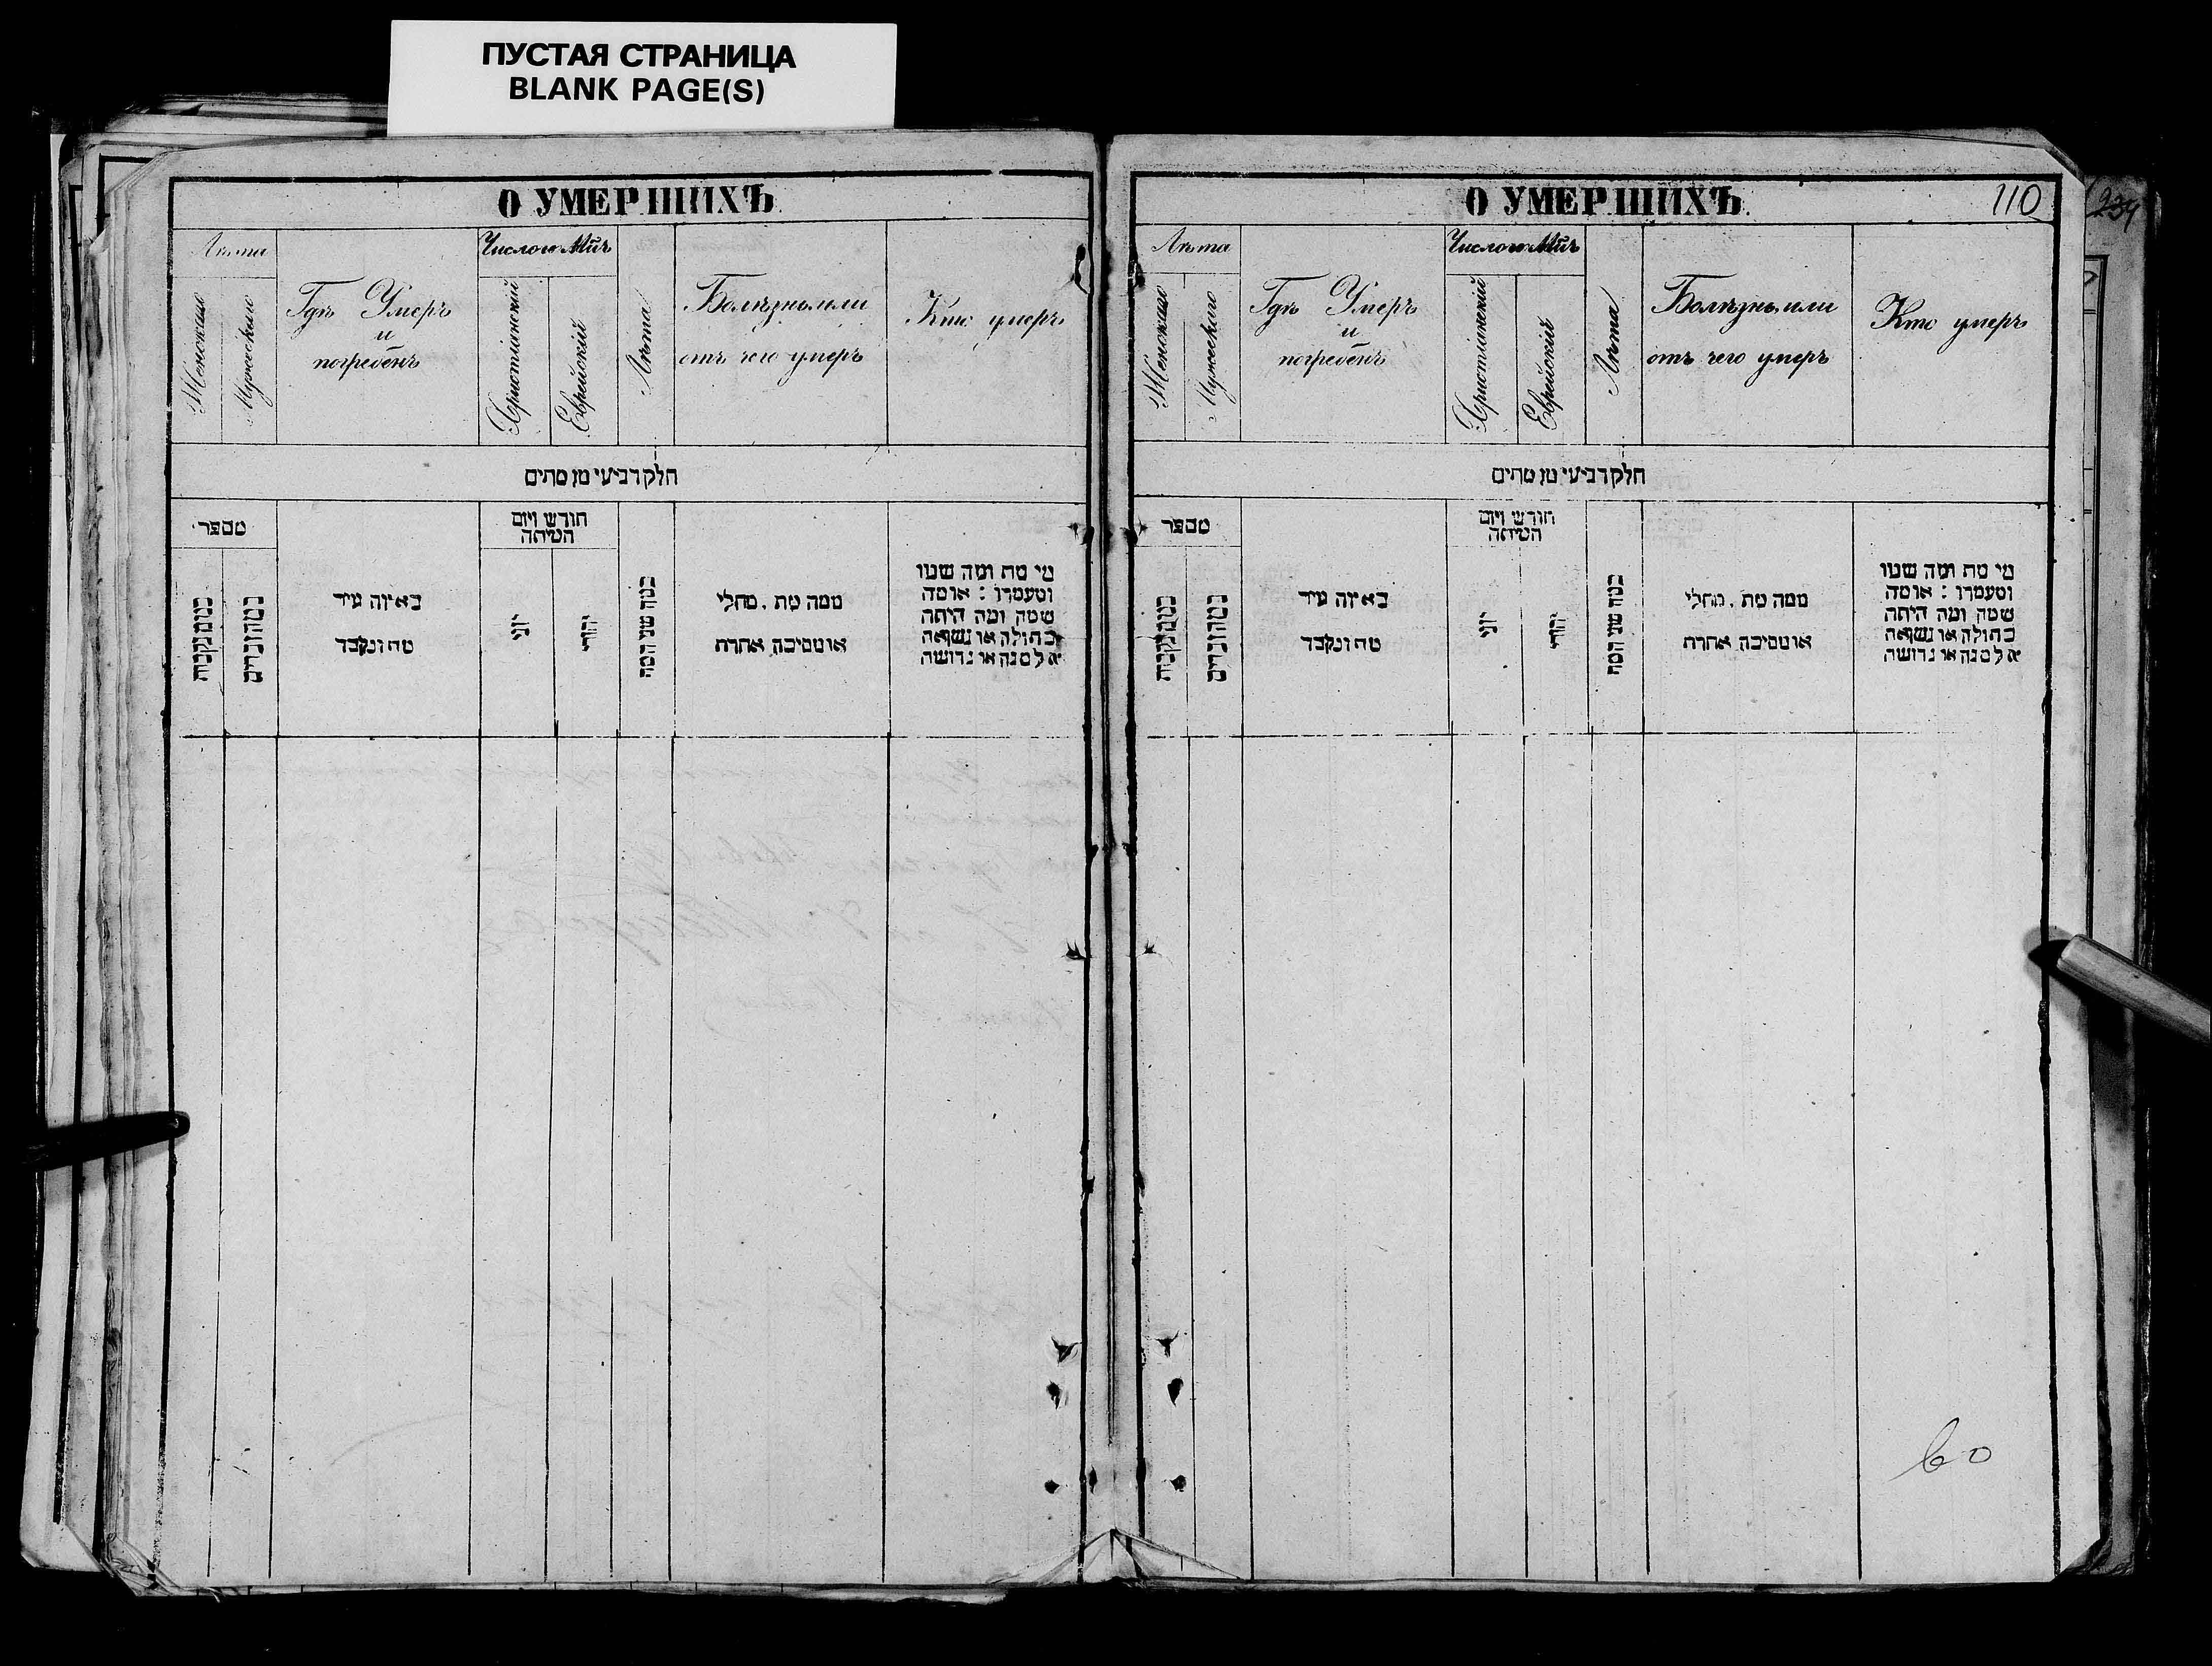 ПУСТАЯ СТРАНИЦА
BLANK PAGE(S)
О УМЕРШИХЪ
Лѣта
Женскаго
Мужескаго
Гдѣ Умеръ
и
погребенъ
Число и Мѣц
Христіанскій
Еврейскій
Лѣта
Болѣзнь или
отъ чего умеръ
Кто умеръ
חלק רביעי מן מתים
מספר
חודש ויום
המיתה
באיזה עיר
מת ונקבר
יוני
יהודי
כמה שני המת
ממה מת . מחלי
או מסיבה אחרת
מי מת ומה שמו
ומעמדו : או מה
שמה ומה היתה
בתולה או נשואה
אלמנה או גרושה
О УМЕРШИХЪ
110
234
Лѣта
Женскаго
Мужескаго
Гдѣ Умеръ
и
погребенъ
Число и Мѣц
Христіанскій
Еврейскій
Лѣта
Болѣзнь или
отъ чего умеръ
Кто умеръ
חלק רביעי מן מתים
מספר
חודש ויום
המיתה
באיזה עיר
מת ונקבר
יוני
יהודי
כמה שני המת
ממה מת . מחלי
או מסיבה אחרת
מי מת ומה שמו
ומעמדו : או מה
שמה ומה היתה
בתולה או נשואה
אלמנה או גרושה
60